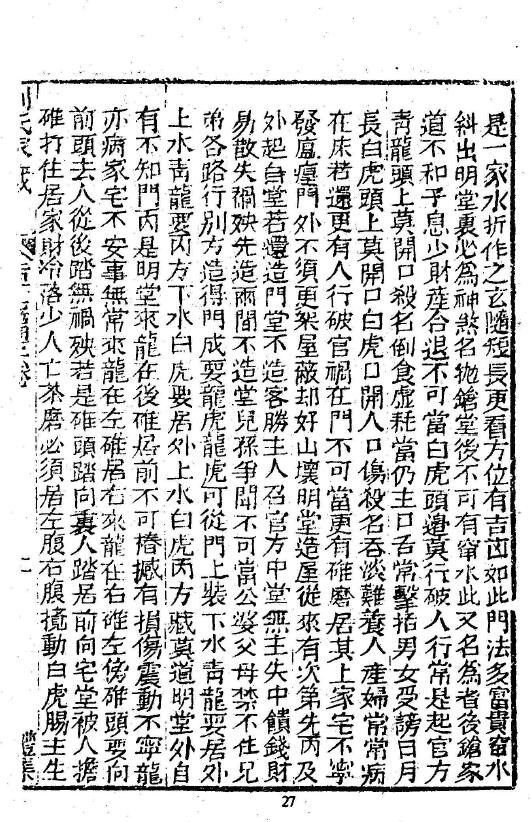 是一家水折作之玄隨短長更看方位有吉凶如此門法多富貴窟水
斜出明堂裏必為神煞名抛鎗堂後不可有窟水此又名為者後鎗家
道不和子息少財産合退不可當白虎頭邊莫行破人行常是起官方
靑龍頭上莫開口殺名倒食虛耗當仍主口舌常擊括男女受謗日月
長白虎頭上莫開口白虎口開人口傷殺名吞淡難養人産婦常常病
在床若還更有人行破官禍在門不可當更有碓磨居其上家宅不寧
發瘟㾮門外不須更築屋蔽却好山壞明堂造屋從來有次第先內及
外起自堂若還造門堂不造客勝主人召官方中堂無主失中饋錢財
易散失禍殃先造兩間不造堂兒孫爭鬧不可當公婆父母禁不住兄
弟各路行別方造得門成要龍虎龍虎可從門上裝下水靑龍要居外
上水靑龍要內方下水白虎要居外上水白虎內方藏莫道明堂外自
有不知門內是明堂來龍在後碓居前不可樁撼有損傷震動不寧龍
亦病家宅不安事無常來龍在左碓居右來龍在右碓左傍碓頭要向
前頭去人從後踏無禍殃若是碓頭踏向裏人踏居前向宅堂被人擔
碓打住居家財冷落少人亡茶磨必須居左腹右腹擣動白虎腸主生
27